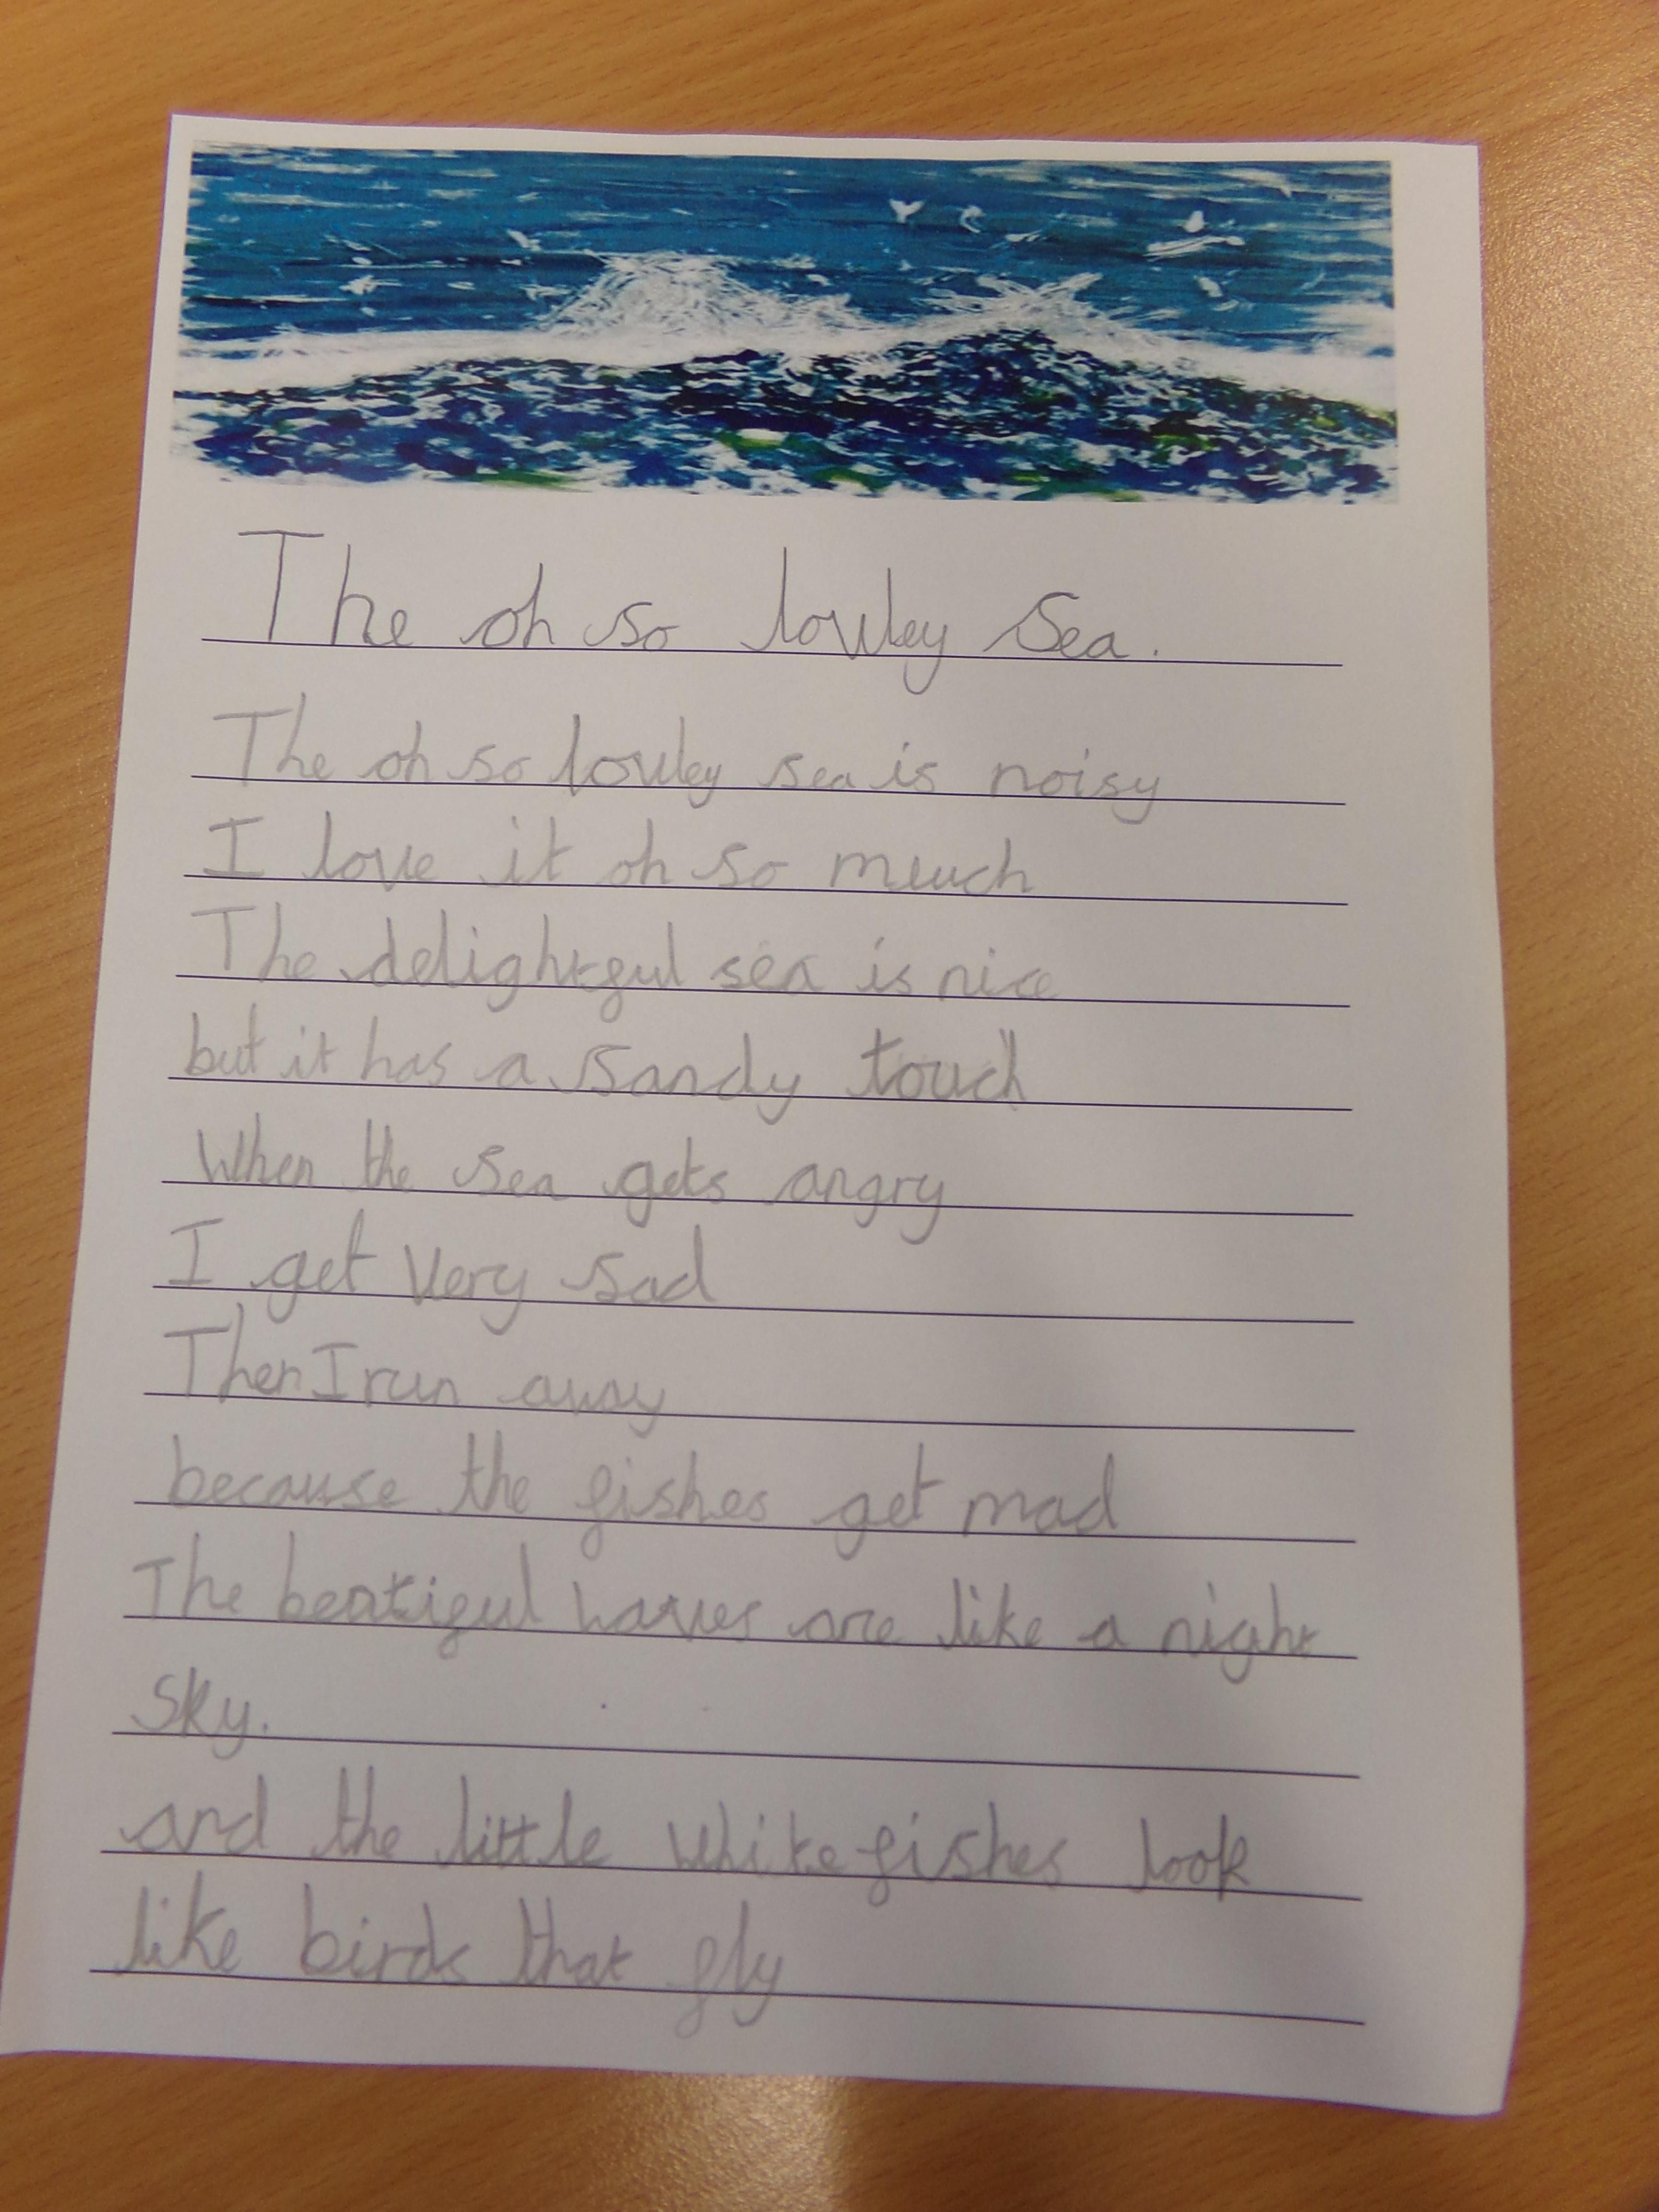 The oh so lovley Sea.
The oh so lovley sea is noisy
I love it oh so much
The delightful sea is nice
but it has a sandy touch
When the sea gets angry
I get very sad
Then I run away
because the fishes get mad
The beatiful waves are like a night
sky.
and the little white fishes look
like birds that fly